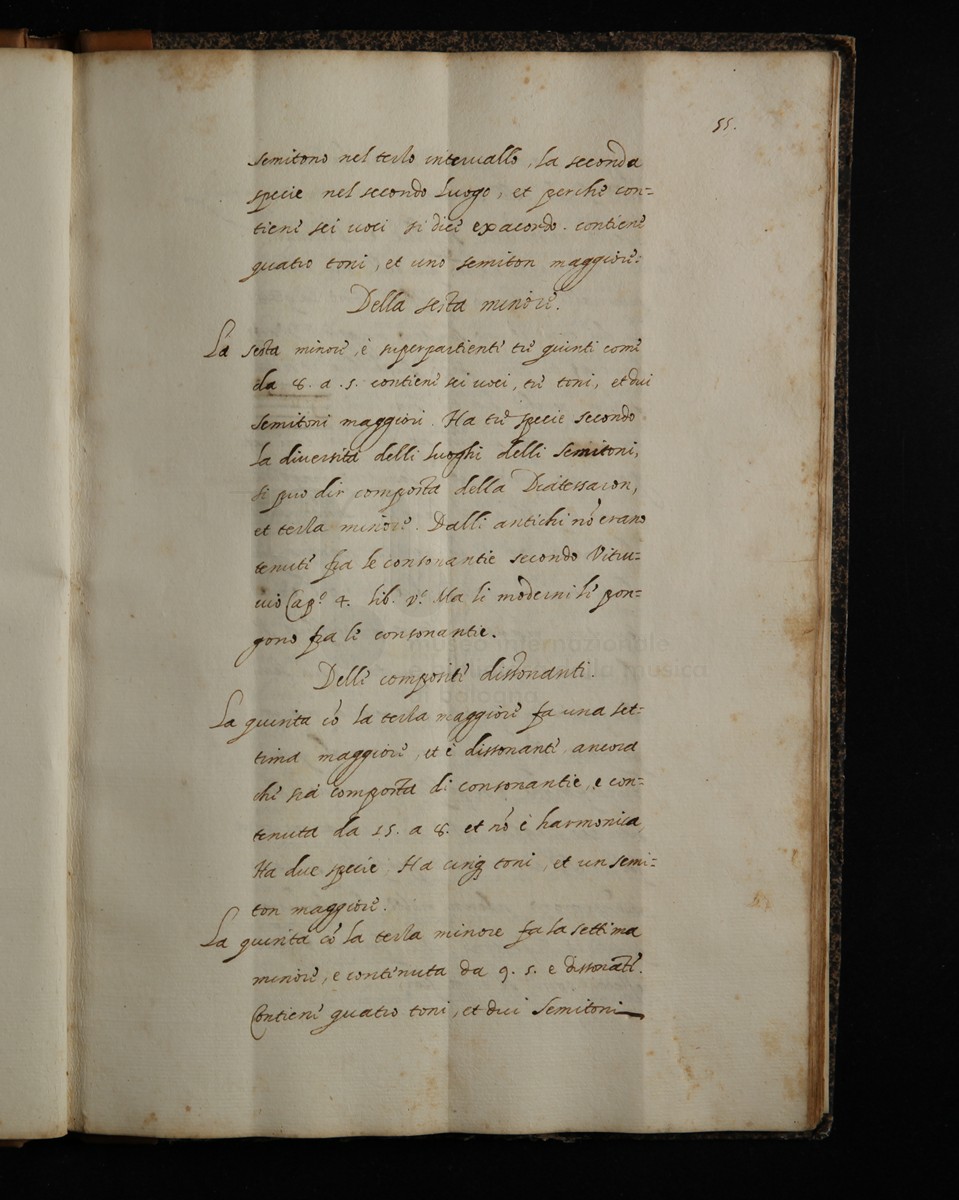 55.
semitono nel terzo intervallo, la seconda
specie nel secondo luogo, et perche con=
tiene sei voci si dice exacordo. contiene
quatro toni, et uno semiton maggiore:
Della sesta minore.
La sesta minore, è superpartiente tre quinti come
da 8. a .5. contiene sei voci, tre toni, et dui
semitoni maggiori. Ha tre specie secondo
la diversità delli luoghi delli semitoni,
si puo dir composta della Diatessaron,
et terza minore. Dalli antichi nõ erano
tenute fra le consonantie secondo Vitru=
vio Cap.º 4. lib. vº. Ma li moderni le pon=
gono fra le consonantie.
Delle composite dissonanti.
museo internazionale
e biblioteca della musica
bologna
La quinta cõ la terza maggiore fa una set=
tima maggiore, et è dissonante, ancora
che sia composta di consonantie, e con=
tenuta da 15. a 8. et nõ è harmonica,
Ha due specie. Ha cinq; toni, et un semi=
ton maggiore.
La quinta cõ la terza minore fa la settima
minore, e continuta da 9. 5. e dissonãte.
Contiene quatro toni, et dui semitoni